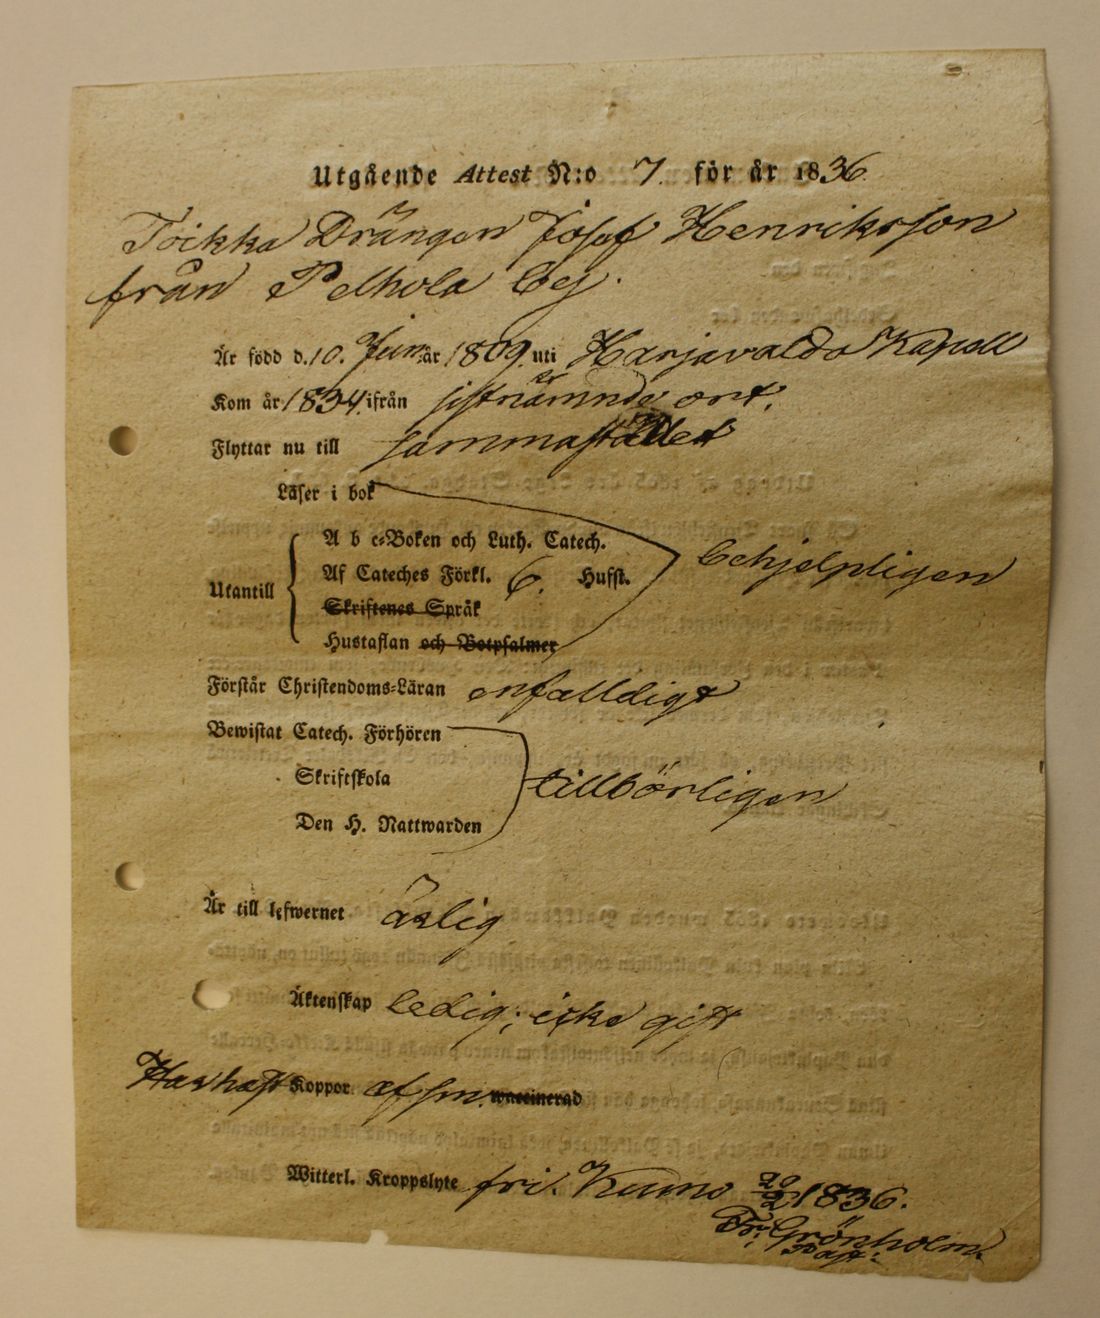 Utgående Attest N:o 7. för år 1836.
Toikka Drängen Josef Henriksson
från Pelhola bej.
Är född d. 10. Juni år 1809. uti Harjavalda Kapell
Kom år 1834. ifrån sistnämnde ort.
Flyttar nu till sammastädes
Läser i bok
A b c-Boken och Luth. Catech.
behjelpligen
Utantill Af Cateches Förkl. 6. Husst.
Skriftenes Språk
Hustaflan och Botpsalmer
Förstår Christendoms-Läran enfalldigt
Bewistat Catech. Förhören
Skriftskola tillbörligen
Den H. Nattwarden
Är till lefwernet ärlig
Äktenskap ledig; icke gift
Har haft Koppor af sm. waccinerad
Witterl. Kroppslyte fri. Kumo 20/2 1836.
Fr. Grönholm
Past: